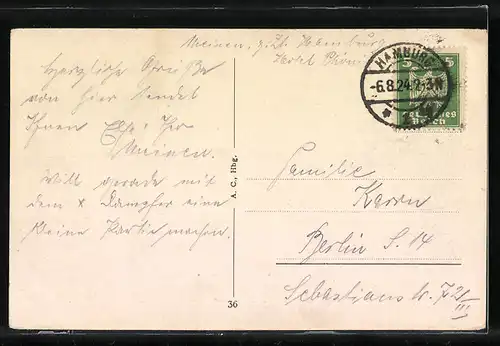 Meinen, z. Zt. Hamburg
Hotel
Herzliche Grüße
von hier sendet
Ihnen Ihr
Meinen.
Will gerade mit
dem x Dampfer eine
kleine Partie machen.
A. C., Hbg.
36
HAMBURG
-6.8.24
5 5
Deutsches
Reich
Familie
Karrn
Berlin S. 14
Sebastianstr. 72
III